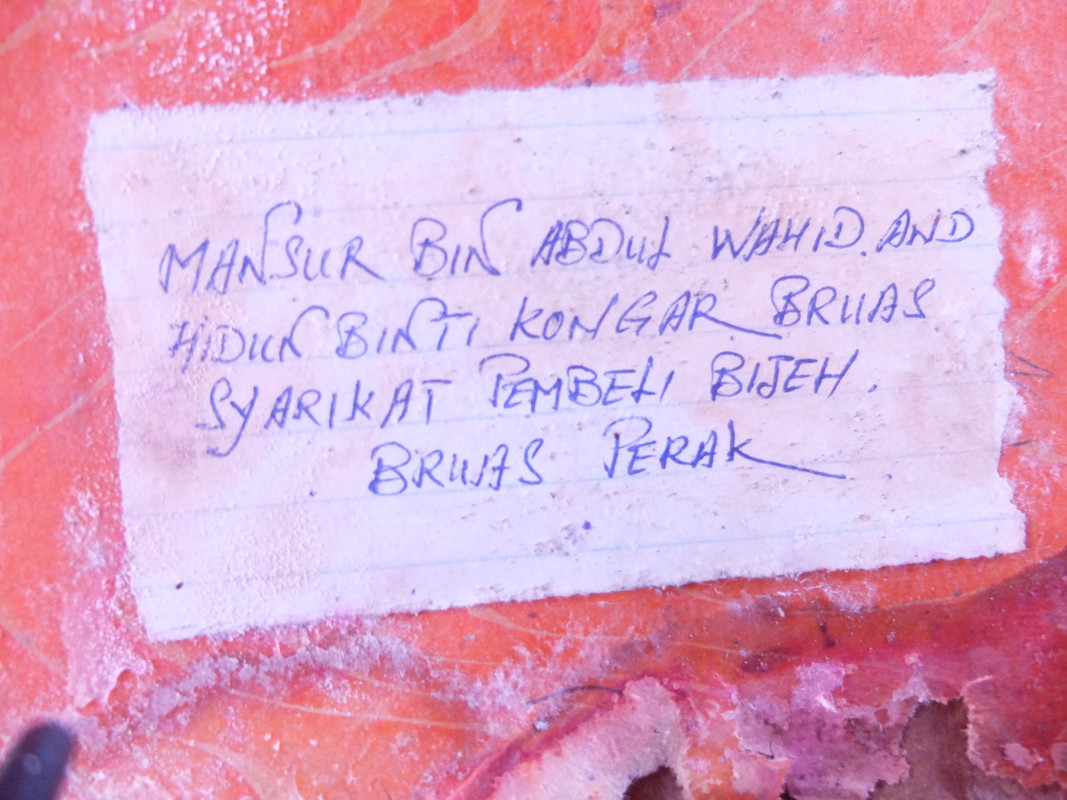 MANSUR BIN ABDUL WAHID. AND
HIDUN BINTI KONGAR BRUAS
SYARIKAT PEMBELI BIJEH.
BRUAS PERAK